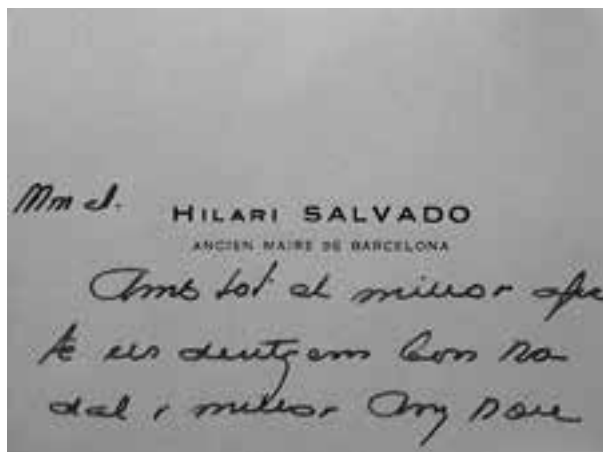 Mm et. HILARI SALVADO
ANCIEN MAIRE DE BARCELONA
Amb tot el millor afec
te us desitgem bon Na
dal i millor Any Nou